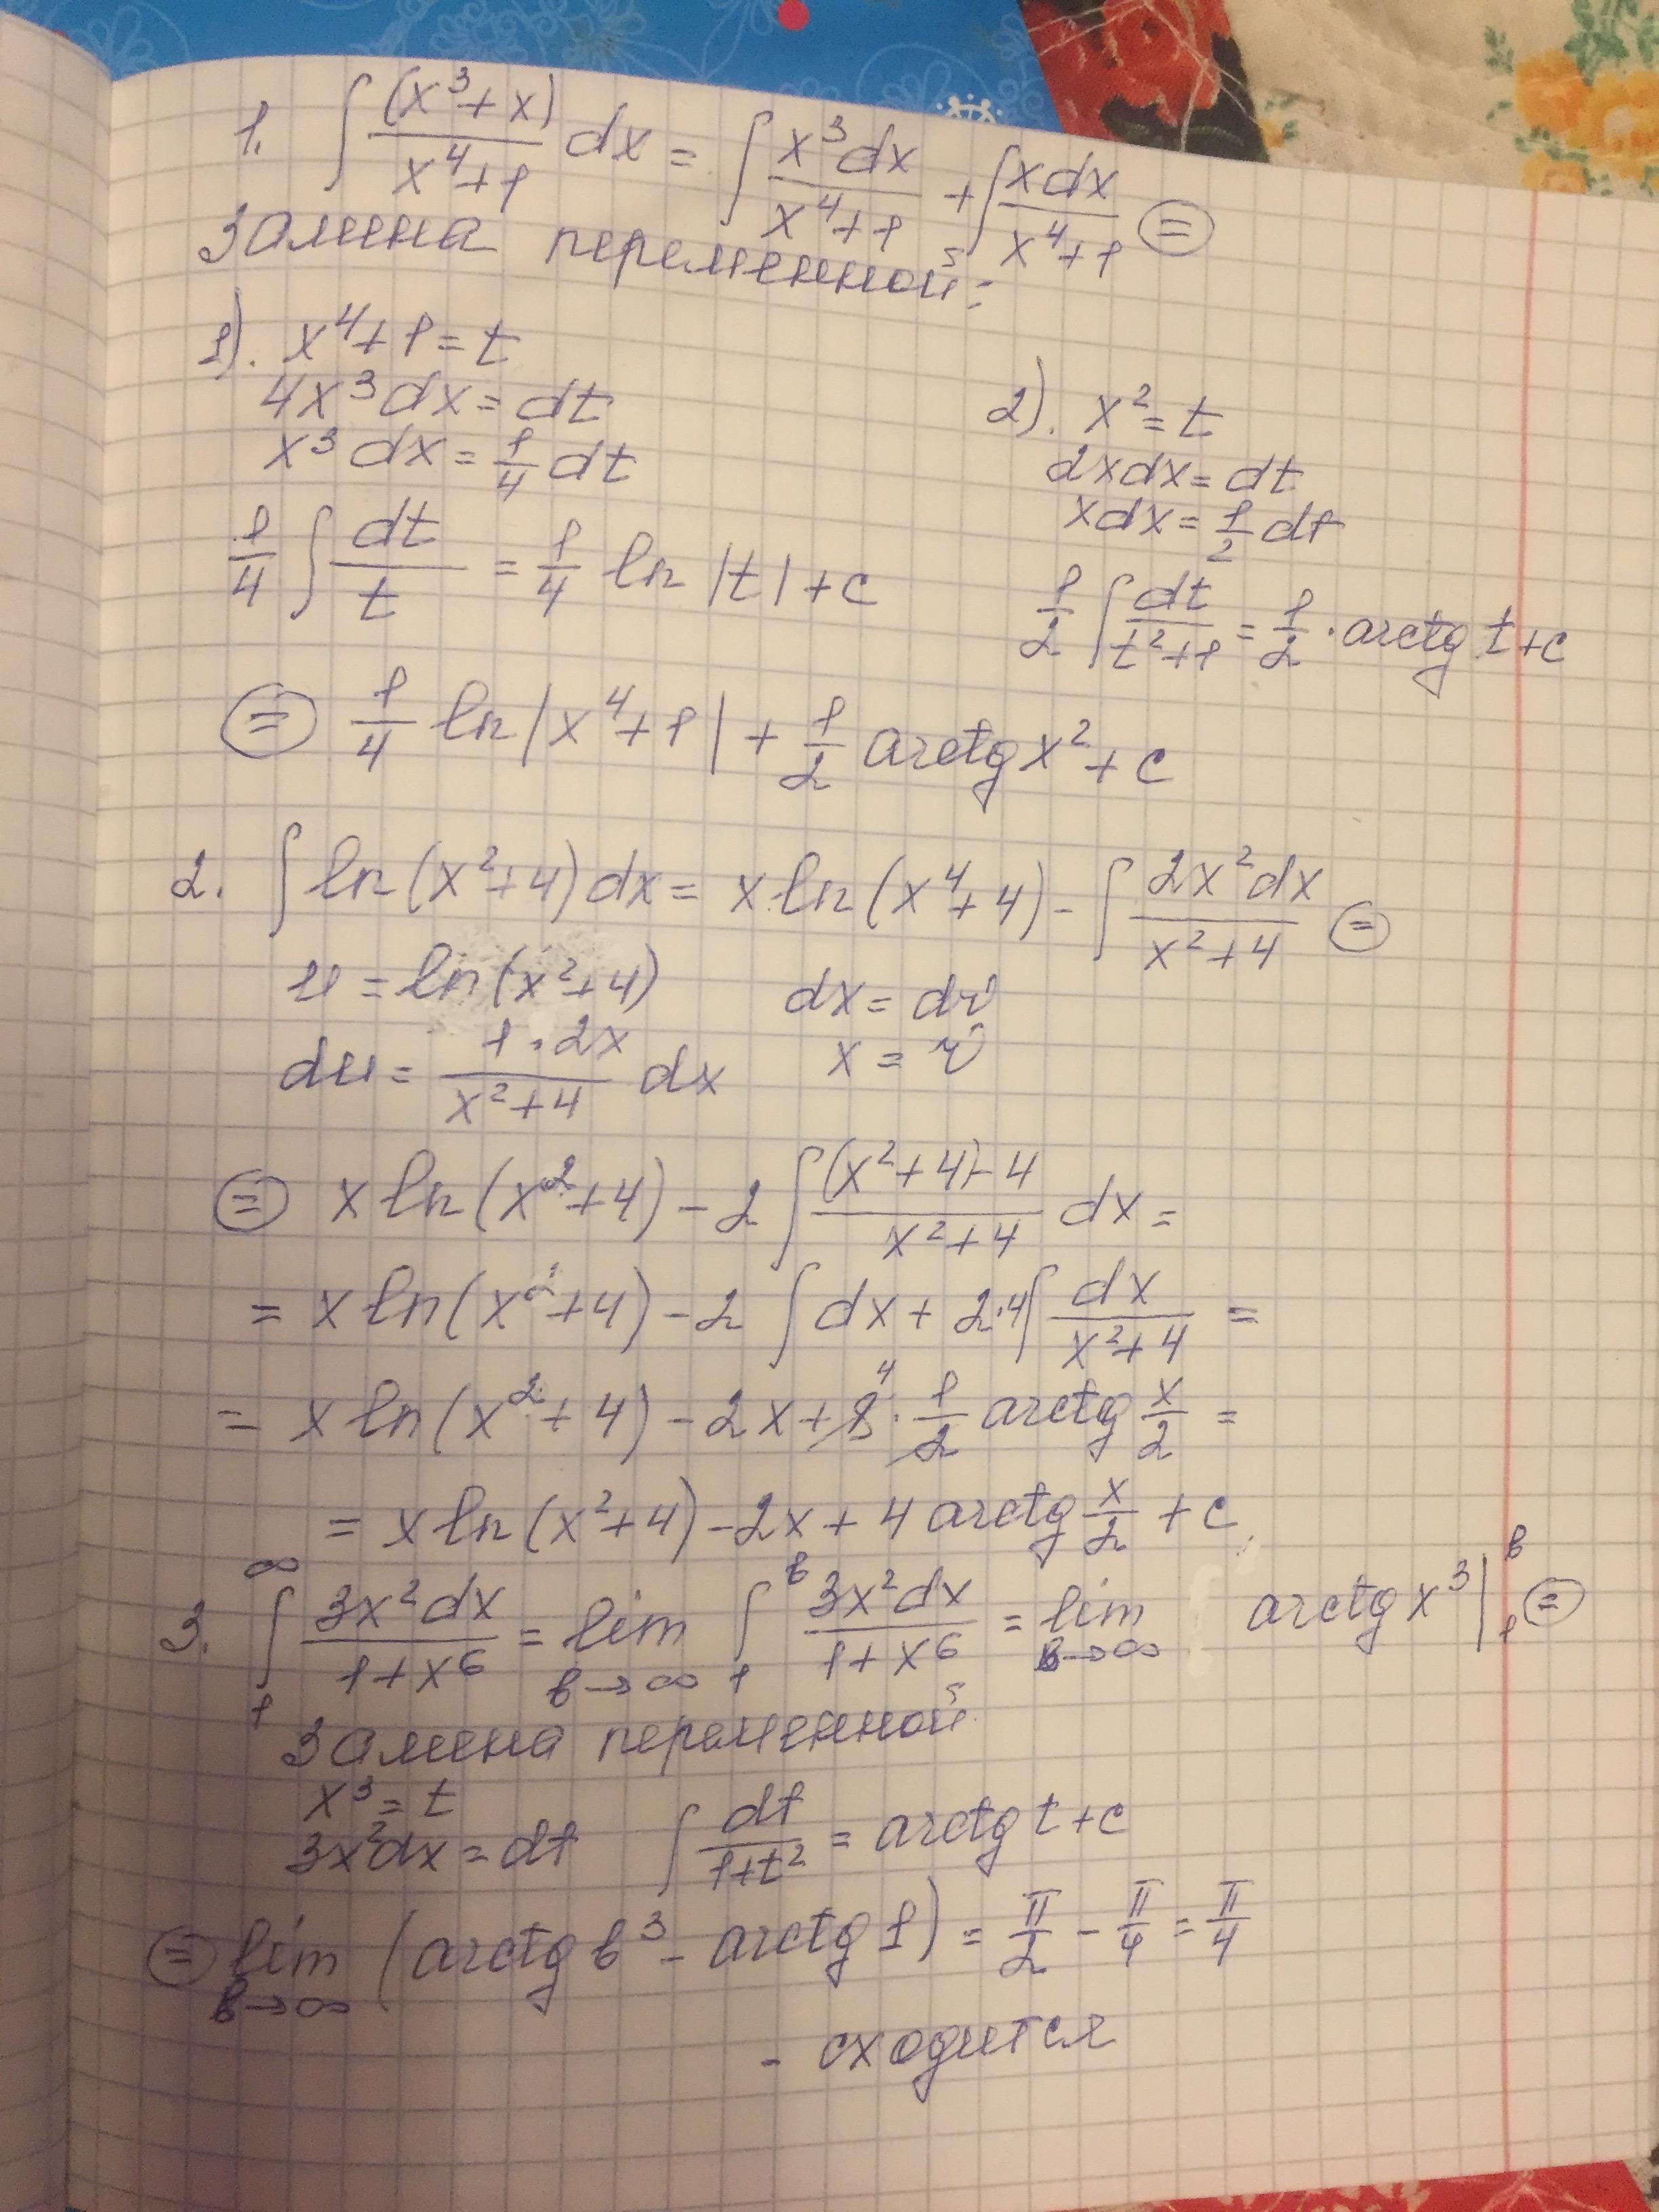 1. ∫ (x³+x)/(x⁴+1) dx = ∫ x³dx/(x⁴+1) + ∫ xdx/(x⁴+1) ⊜
Замена переменной:
1). x⁴+1=t
4x³dx=dt
x³dx=1/4 dt
1/4 ∫ dt/t = 1/4 ln|t|+c
2). x²=t
2xdx=dt
xdx=1/2 dt
1/2 ∫ dt/(t²+1) = 1/2 · arctg t+c
⊜ 1/4 ln|x⁴+1| + 1/2 arctg x²+c
2. ∫ ln(x²+4)dx = x ln(x⁴+4) - ∫ 2x²dx/(x²+4) ⊜
u = ln(x²+4) dx = dv
du = 1·2x/(x²+4) dx x = v
⊜ x ln(x²+4) - 2 ∫ ((x²+4)-4)/(x²+4) dx =
= x ln(x²+4) - 2 ∫ dx + 2·4 ∫ dx/(x²+4) =
= x ln(x²+4) - 2x + 8⁴ · 1/2 arctg x/2 =
= x ln(x²+4) - 2x + 4 arctg x/2 + c
3. ∫₁^∞ 3x²dx/(1+x⁶) = lim b→∞ ∫₁^b 3x²dx/(1+x⁶) = lim b→∞ arctg x³|₁^b ⊜
Замена переменной
x³=t
3x²dx=dt ∫ dt/(1+t²) = arctg t+c
⊜ lim b→∞ (arctg b³ - arctg 1) = π/2 - π/4 = π/4
- сходится